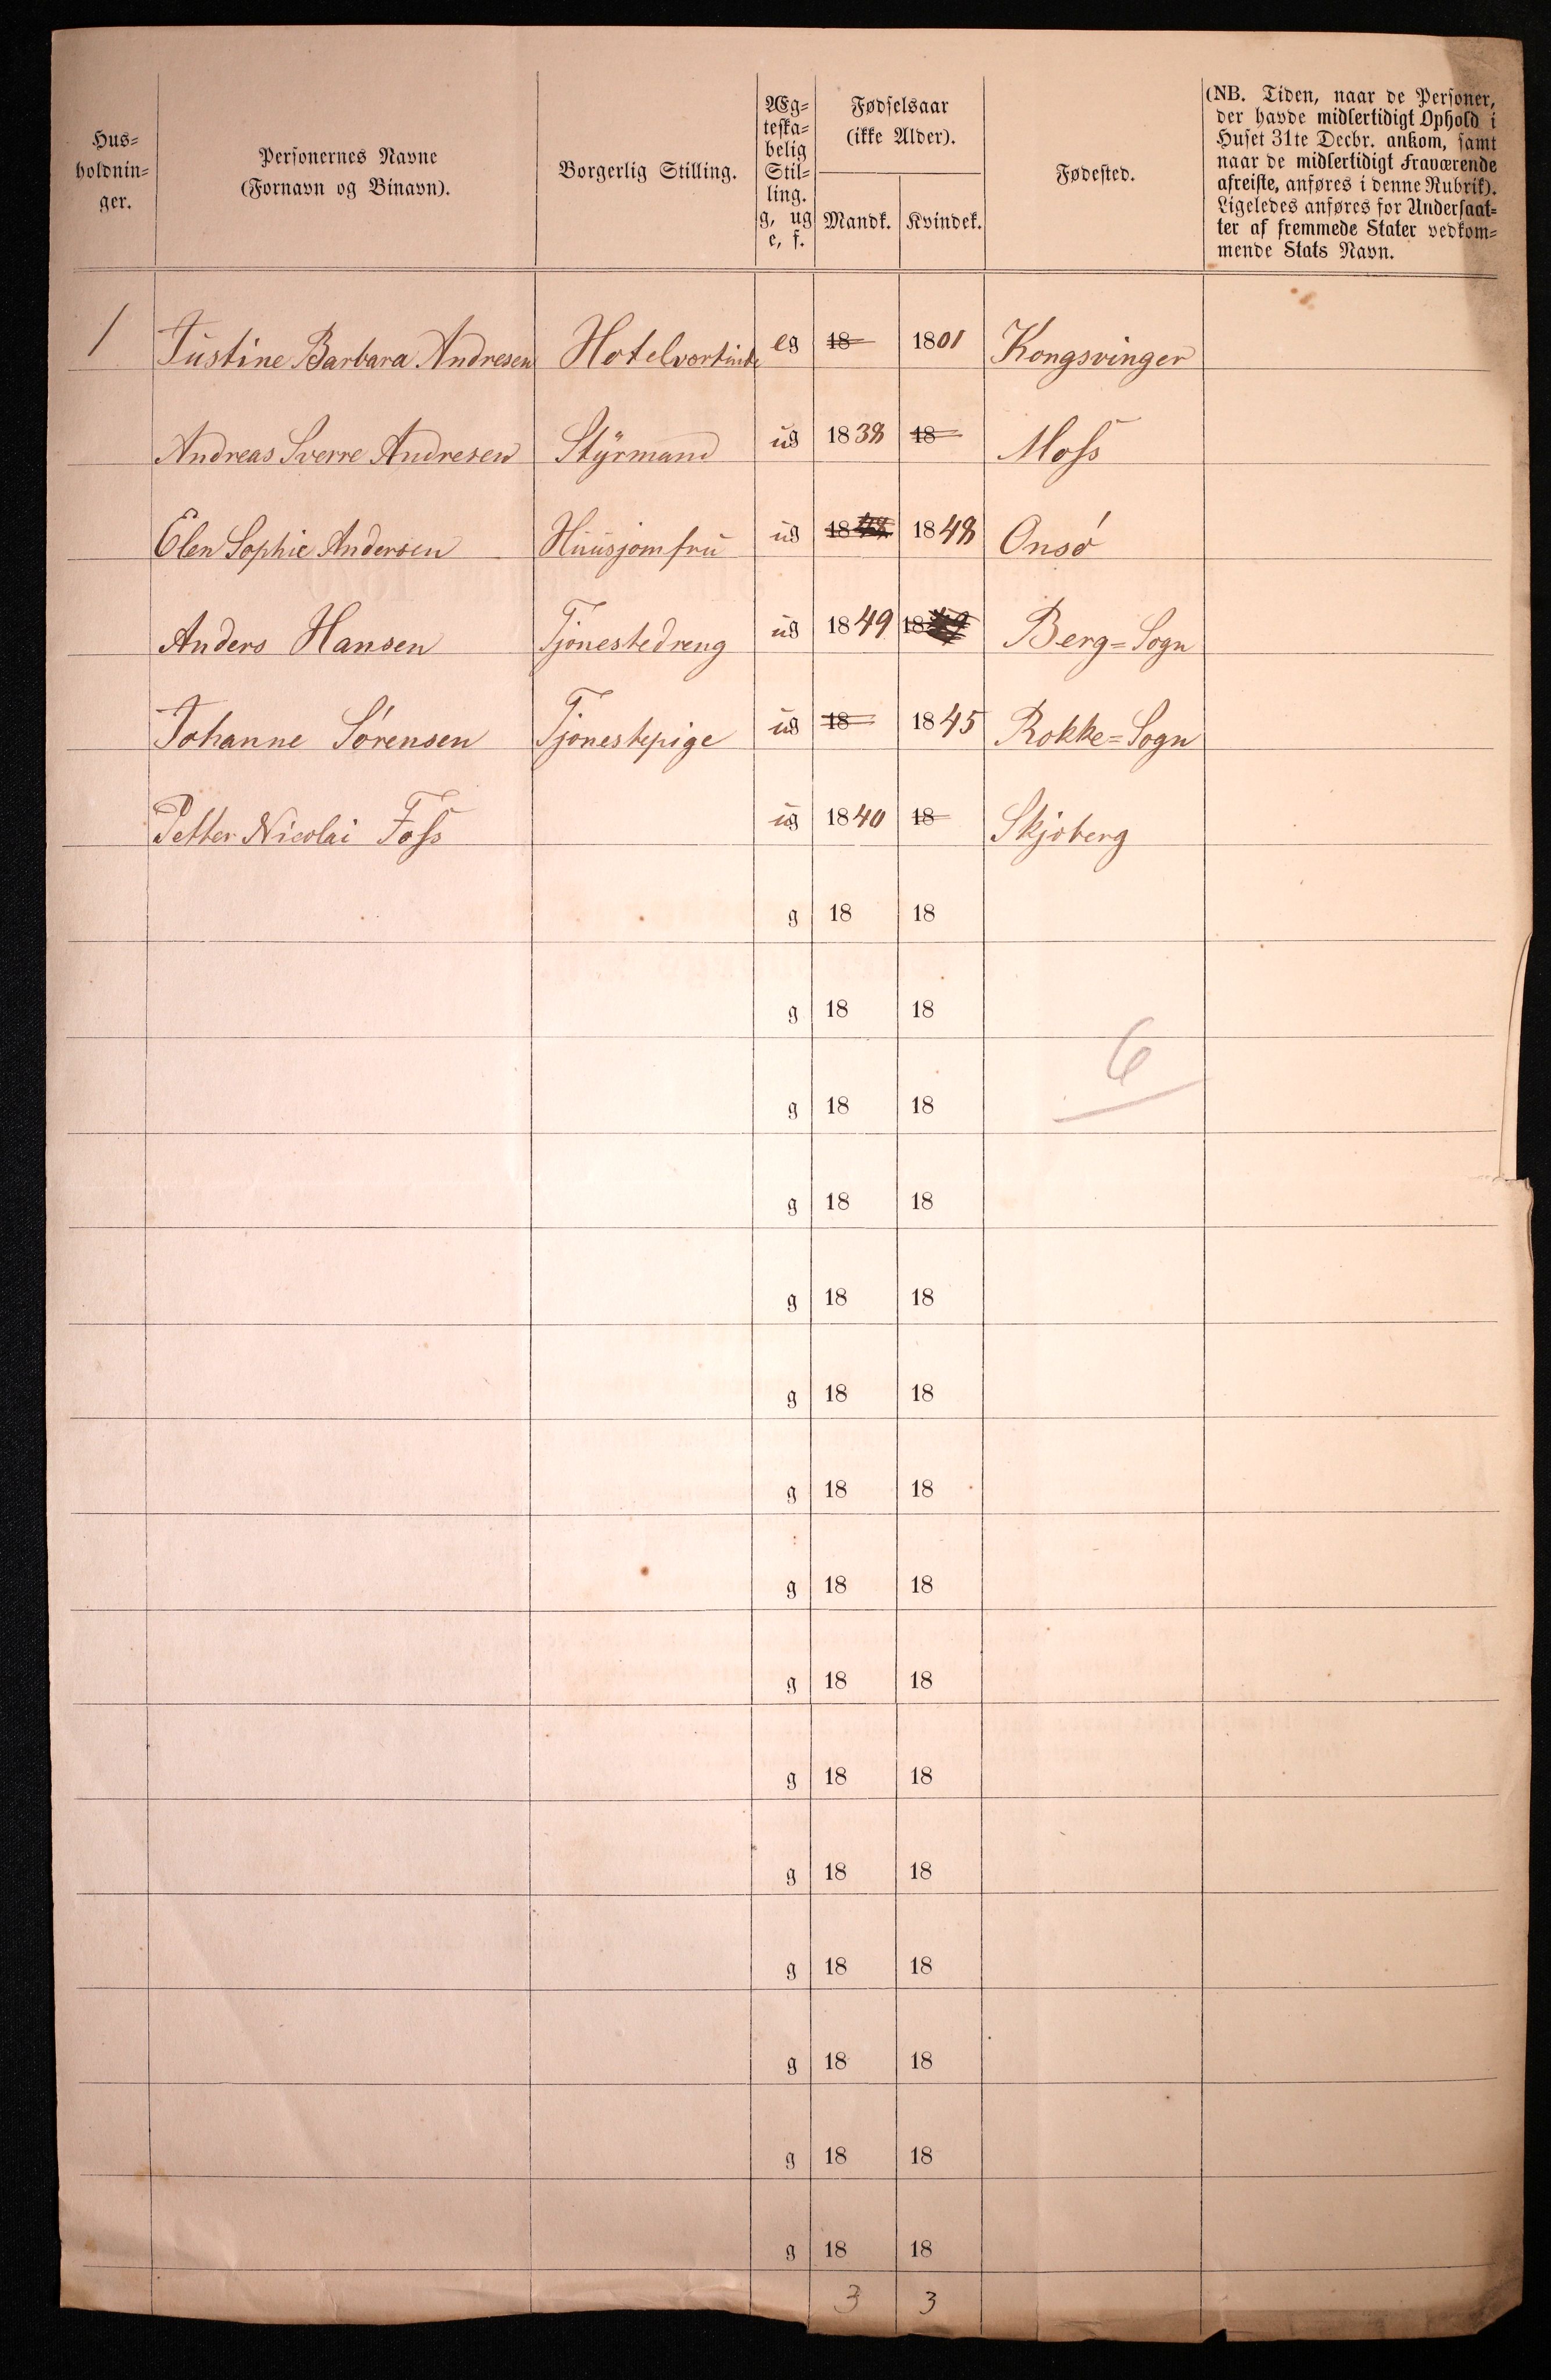 Hus-
holdnin-
ger.
Personernes Navne
(Fornavn og Binavn).
Borgerlig Stilling.
Æg-
teska-
belig
Stil-
ling.
g, ug
e, f.
Fødselsaar
(ikke Alder).
Mandk. Kvindek.
Fødested.
(NB. Tiden, naar de Personer,
der havde midlertidigt Ophold i
Huset 31te Decbr. ankom, samt
naar de midlertidigt Fraværende
afreiste, anføres i denne Rubrik).
Ligeledes anføres for Undersaat-
ter af fremmede Stater vedkom-
mende Stats Navn.
1 Justine Barbara Andresen Hotelvertinde eg 18 1801 Kongsvinger
Andreas Sverre Andresen Styrmand ug 1838 18 Moss
Elen Sophie Andersen Huusjomfru ug 1848 1848 Onsø
Anders Hansen Tjønestedreng ug 1849 1849 Berg=Sogn
Johanne Sørensen Tjønestepige ug 18 1845 Rokke=Sogn
Petter Nicolai Foss ug 1840 18 Skjøberg
g 18 18
g 18 18
6
g 18 18
g 18 18
g 18 18
g 18 18
g 18 18
g 18 18
g 18 18
g 18 18
g 18 18
g 18 18
g 18 18
g 18 18
g 18 18
3 3